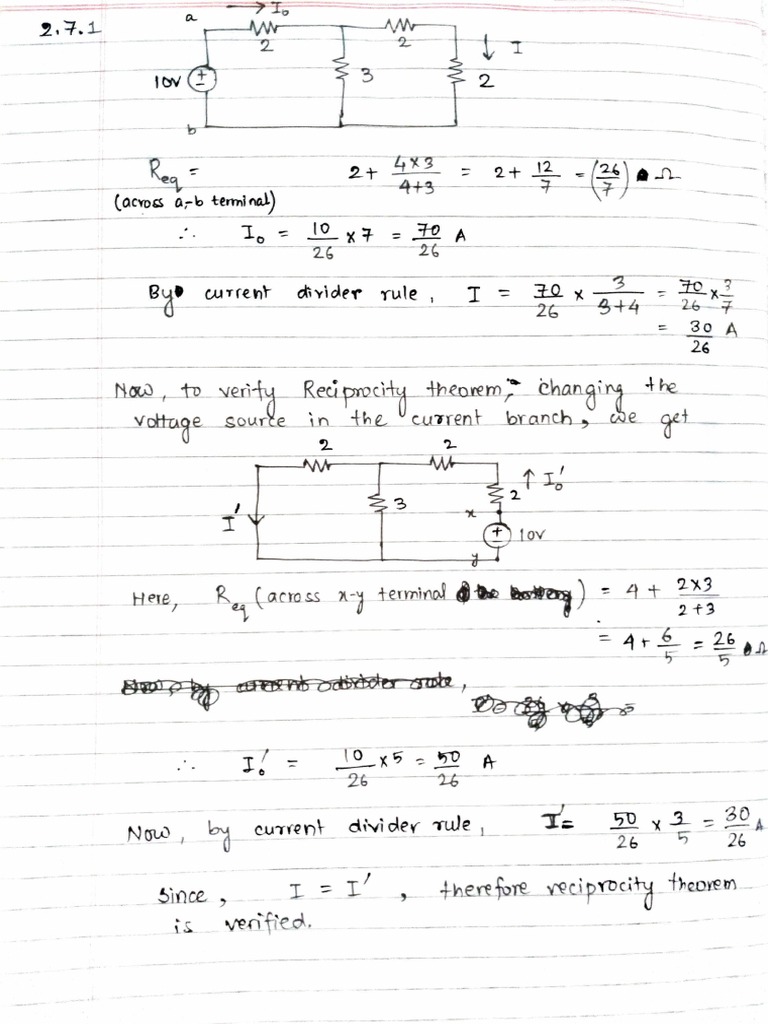 2.7.1
a → I₀
2 2 ↓ I
10V ± 3 2
b
Req = 2 + 4×3/4+3 = 2 + 12/7 = (26/7) Ω
(across a-b terminal)
∴ I₀ = 10/26 × 7 = 70/26 A
By current divider rule, I = 70/26 × 3/3+4 = 70/26 × 3/7
= 30/26 A
Now, to verify Reciprocity theorem, changing the
voltage source in the current branch, we get
2 2
I' 3 2 ↑ I₀'
x
± 10V
y
Here, Req (across x-y terminal) = 4 + 2×3/2+3
= 4 + 6/5 = 26/5 Ω
∴ I₀' = 10/26 × 5 = 50/26 A
Now, by current divider rule, I' = 50/26 × 3/5 = 30/26 A
Since, I = I', therefore reciprocity theorem
is verified.